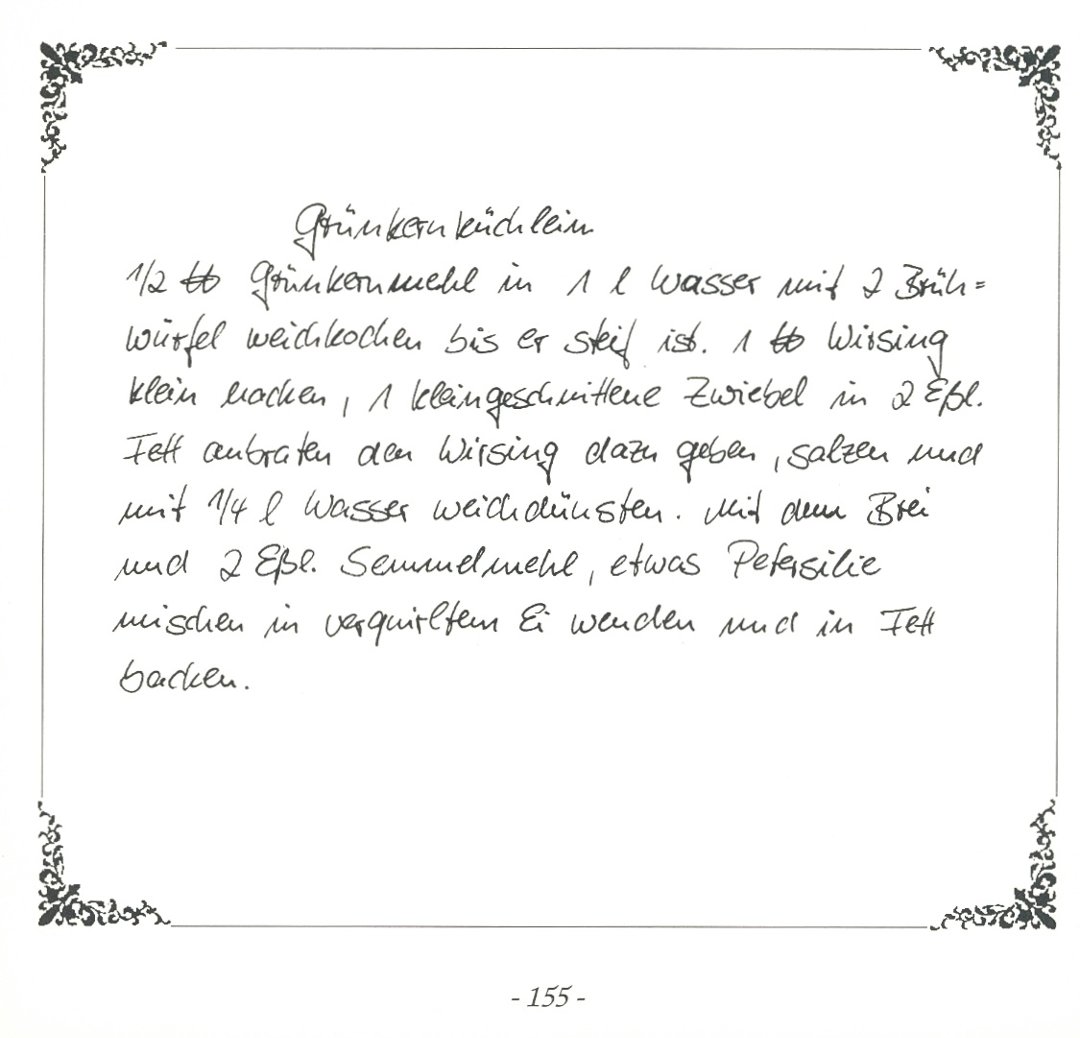 Grünkernküchlein
1/2 ℔ Grünkernmehl in 1 l Wasser mit 2 Brüh=
würfel weichkochen bis er steif ist. 1 ℔ Wirsing
klein hacken, 1 kleingeschnittene Zwiebel in 2 Eßl.
Fett anbraten den Wirsing dazu geben, salzen und
mit 1/4 l Wasser weichdünsten. Mit dem Brei
und 2 Eßl. Semmelmehl, etwas Petersilie
mischen in verquirltem Ei wenden und in Fett
backen.
- 155 -